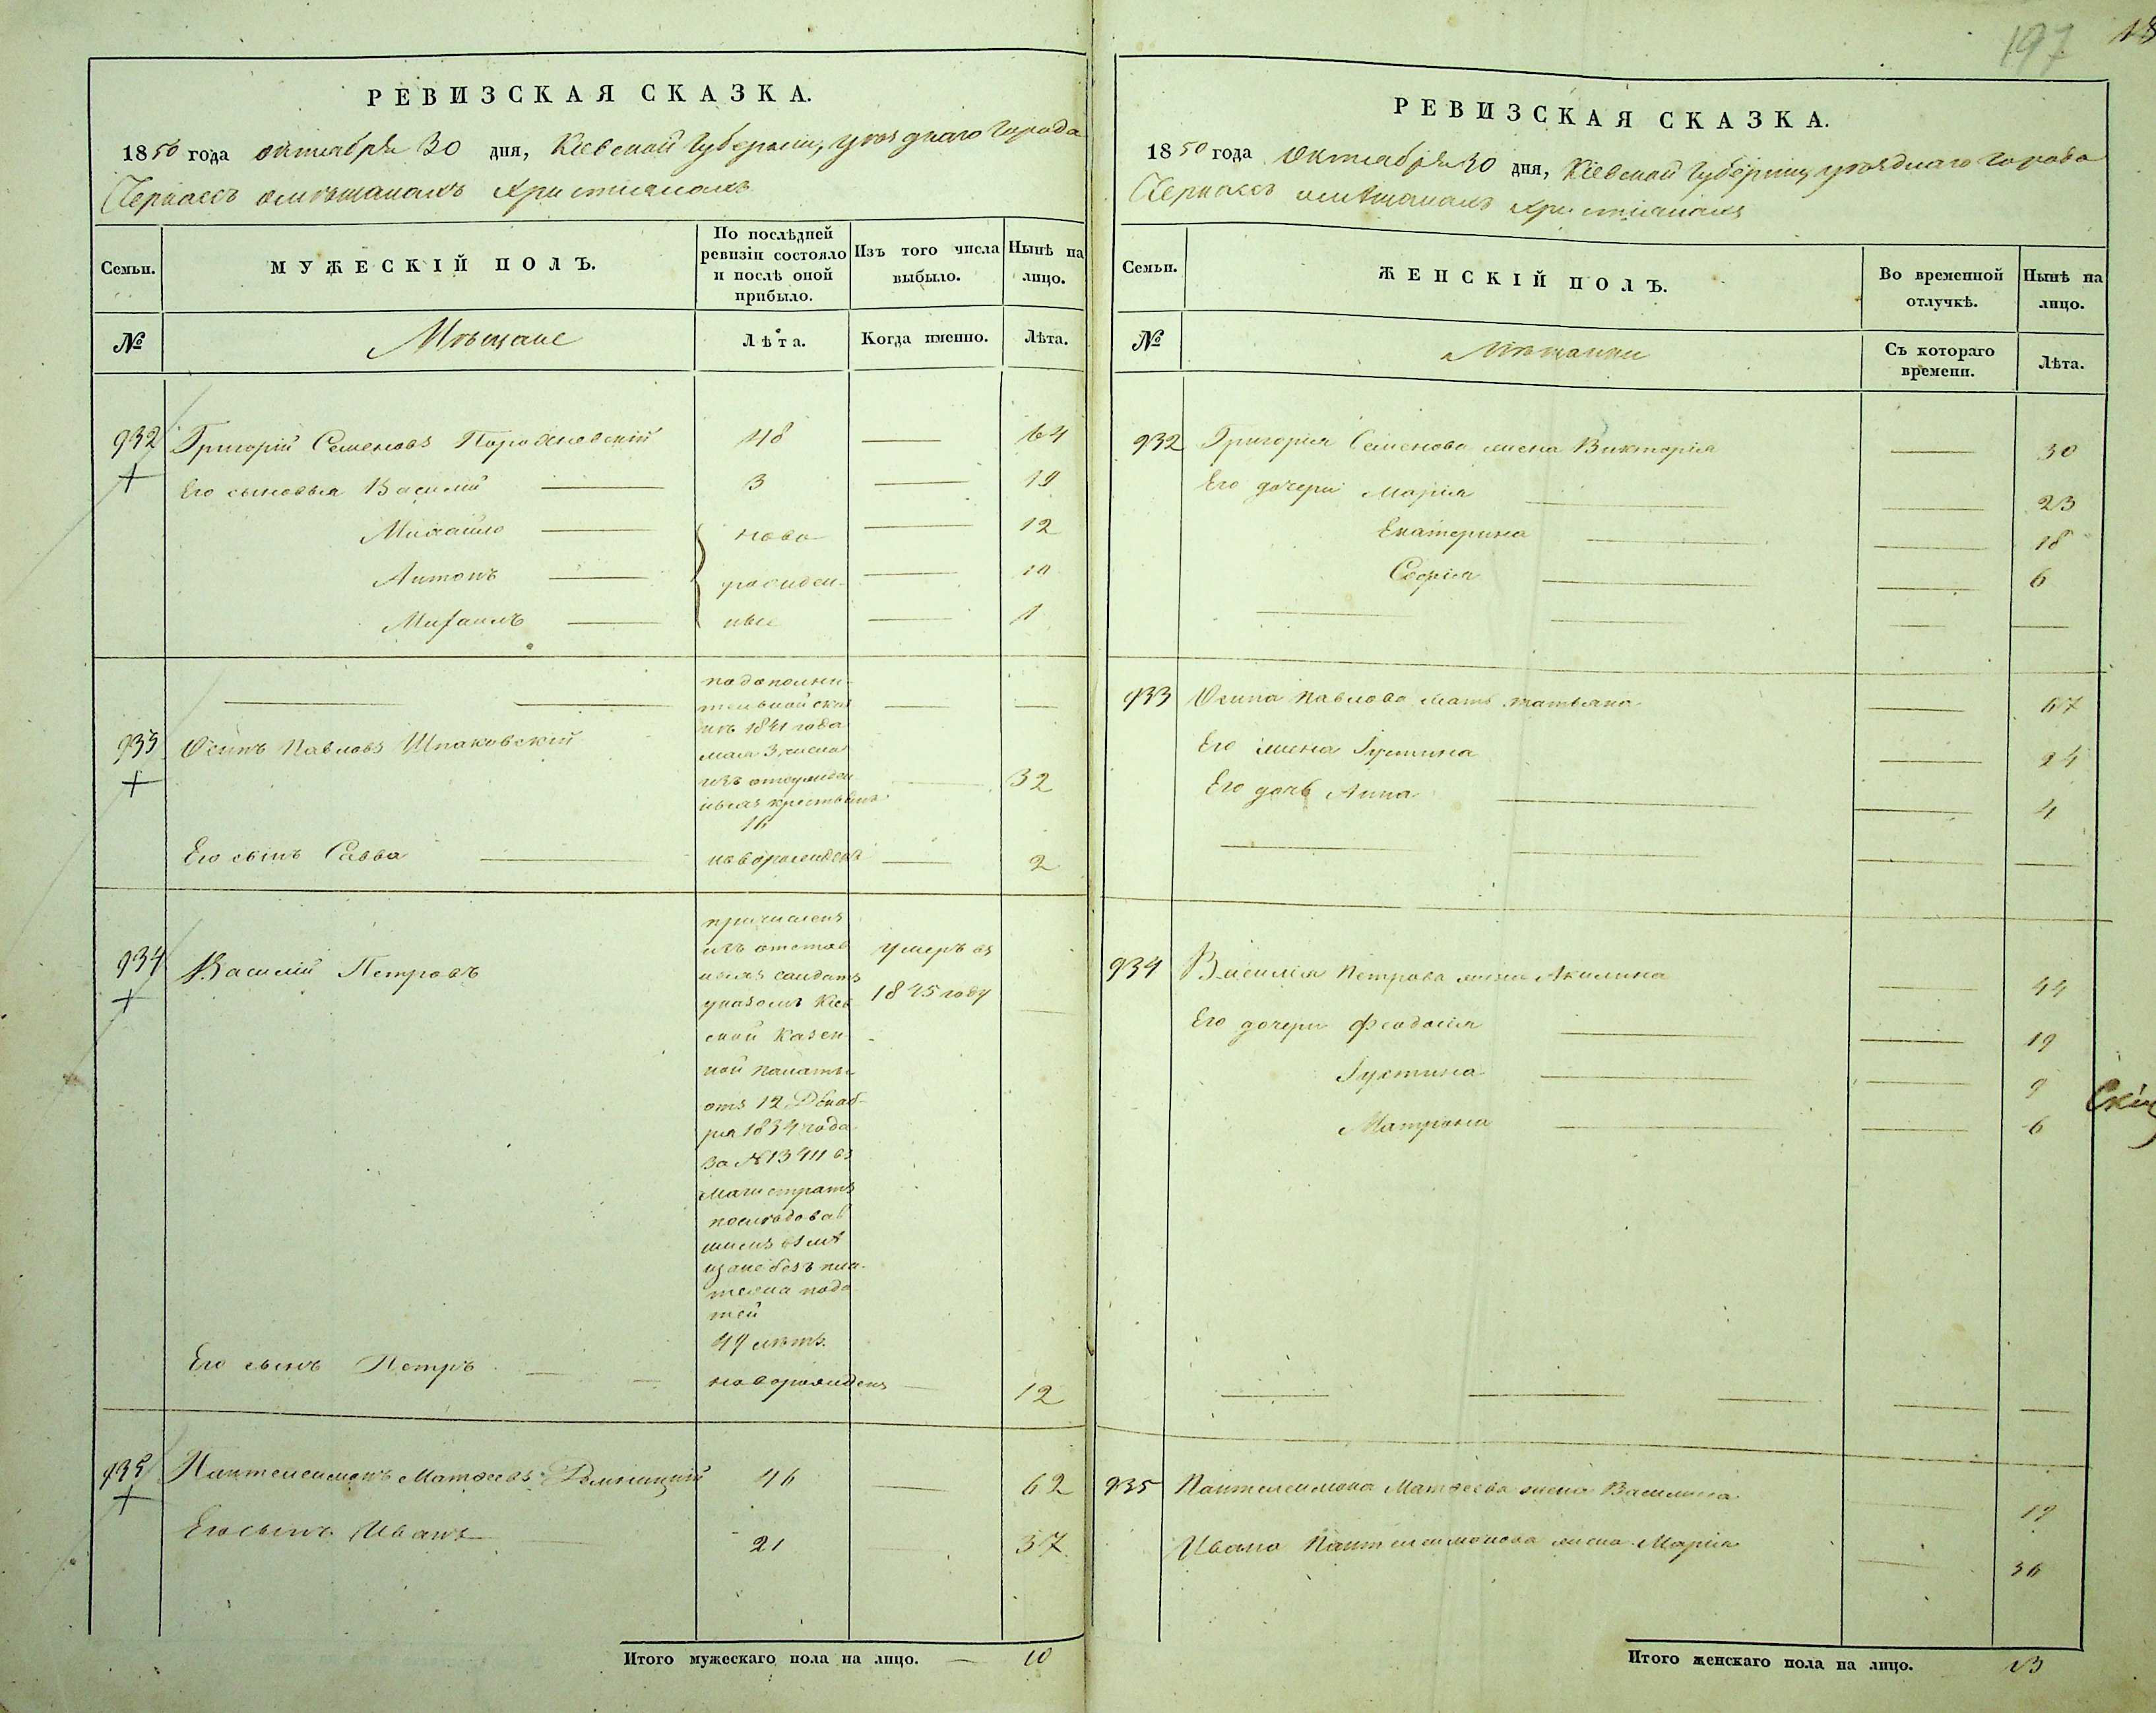 197
18
РЕВИЗСКАЯ СКАЗКА.
1850 года октября 30 дня, Кіевской Губерніи, уѣзднаго Города
Черкассъ о мѣщанахъ христіанахъ
Семьи.
МУЖЕСКІЙ ПОЛЪ.
По послѣдней ревизіи состояло и послѣ оной прибыло.
Изъ того числа выбыло.
Нынѣ на лицо.
№
Мѣщане
Лѣта.
Когда именно.
Лѣта.
932 Григорій Семеновъ 48 — 64
Его сыновья Василій — 3 — 19
Михайло — ново — 12
Антонъ — рожден —
Михаилъ — ные — 1
по дополни
тельной сказ
кѣ 1841 года
мая 3, числа
935 Осипъ Павловъ Шпаковскій
изъ отсужден
ныхъ крестьянъ
16
— 32
Его сынъ Савва — новорожденъ — 2
934 Василій Петровъ
причисленъ
изъ отстав
ныхъ солдатъ
указомъ Кіев
ской Казен
ной Палаты
отъ 12 Декаб-
ря 1834 года
за № 13411 въ
Магистратъ
послѣдовав
шимъ въ мѣ
щане безъ пла-
тежа пода
тей
49 лѣтъ.
умеръ въ
1845 году
Его сынъ Петръ — — новорожденъ — 12
935 Пантелеимонъ Матѳеевъ 46 — 62
Его сынъ Иванъ 21 — 37
Итого мужескаго пола на лицо. — 10
РЕВИЗСКАЯ СКАЗКА.
1850 года Октября 30 дня, Кіевской Губерніи уѣзднаго Города
Черкассъ о мѣщанахъ христіанахъ
Семьи.
ЖЕНСКІЙ ПОЛЪ.
Во временной отлучкѣ.
Нынѣ на лицо.
№
Мѣщанки
Съ котораго времени.
Лѣта.
932 Григорія Семенова жена Викторія — 30
Его дочери Марія — — 23
Екатерина — — 18
Софія — — 6
933 Осипа Павлова мать татьяна — 67
Его жена Іустина — 24
Его дочь Анна — — 4
934 Василія Петрова жена Акилина — 44
Его дочери Феодосія — — 19
Іустина — — 9
Матрона — — 6
935 Пантелеимона Матѳеева жена Василиса — 19
Ивана Пантелеимонова жена Марія — 36
Итого женскаго пола на лицо. 13